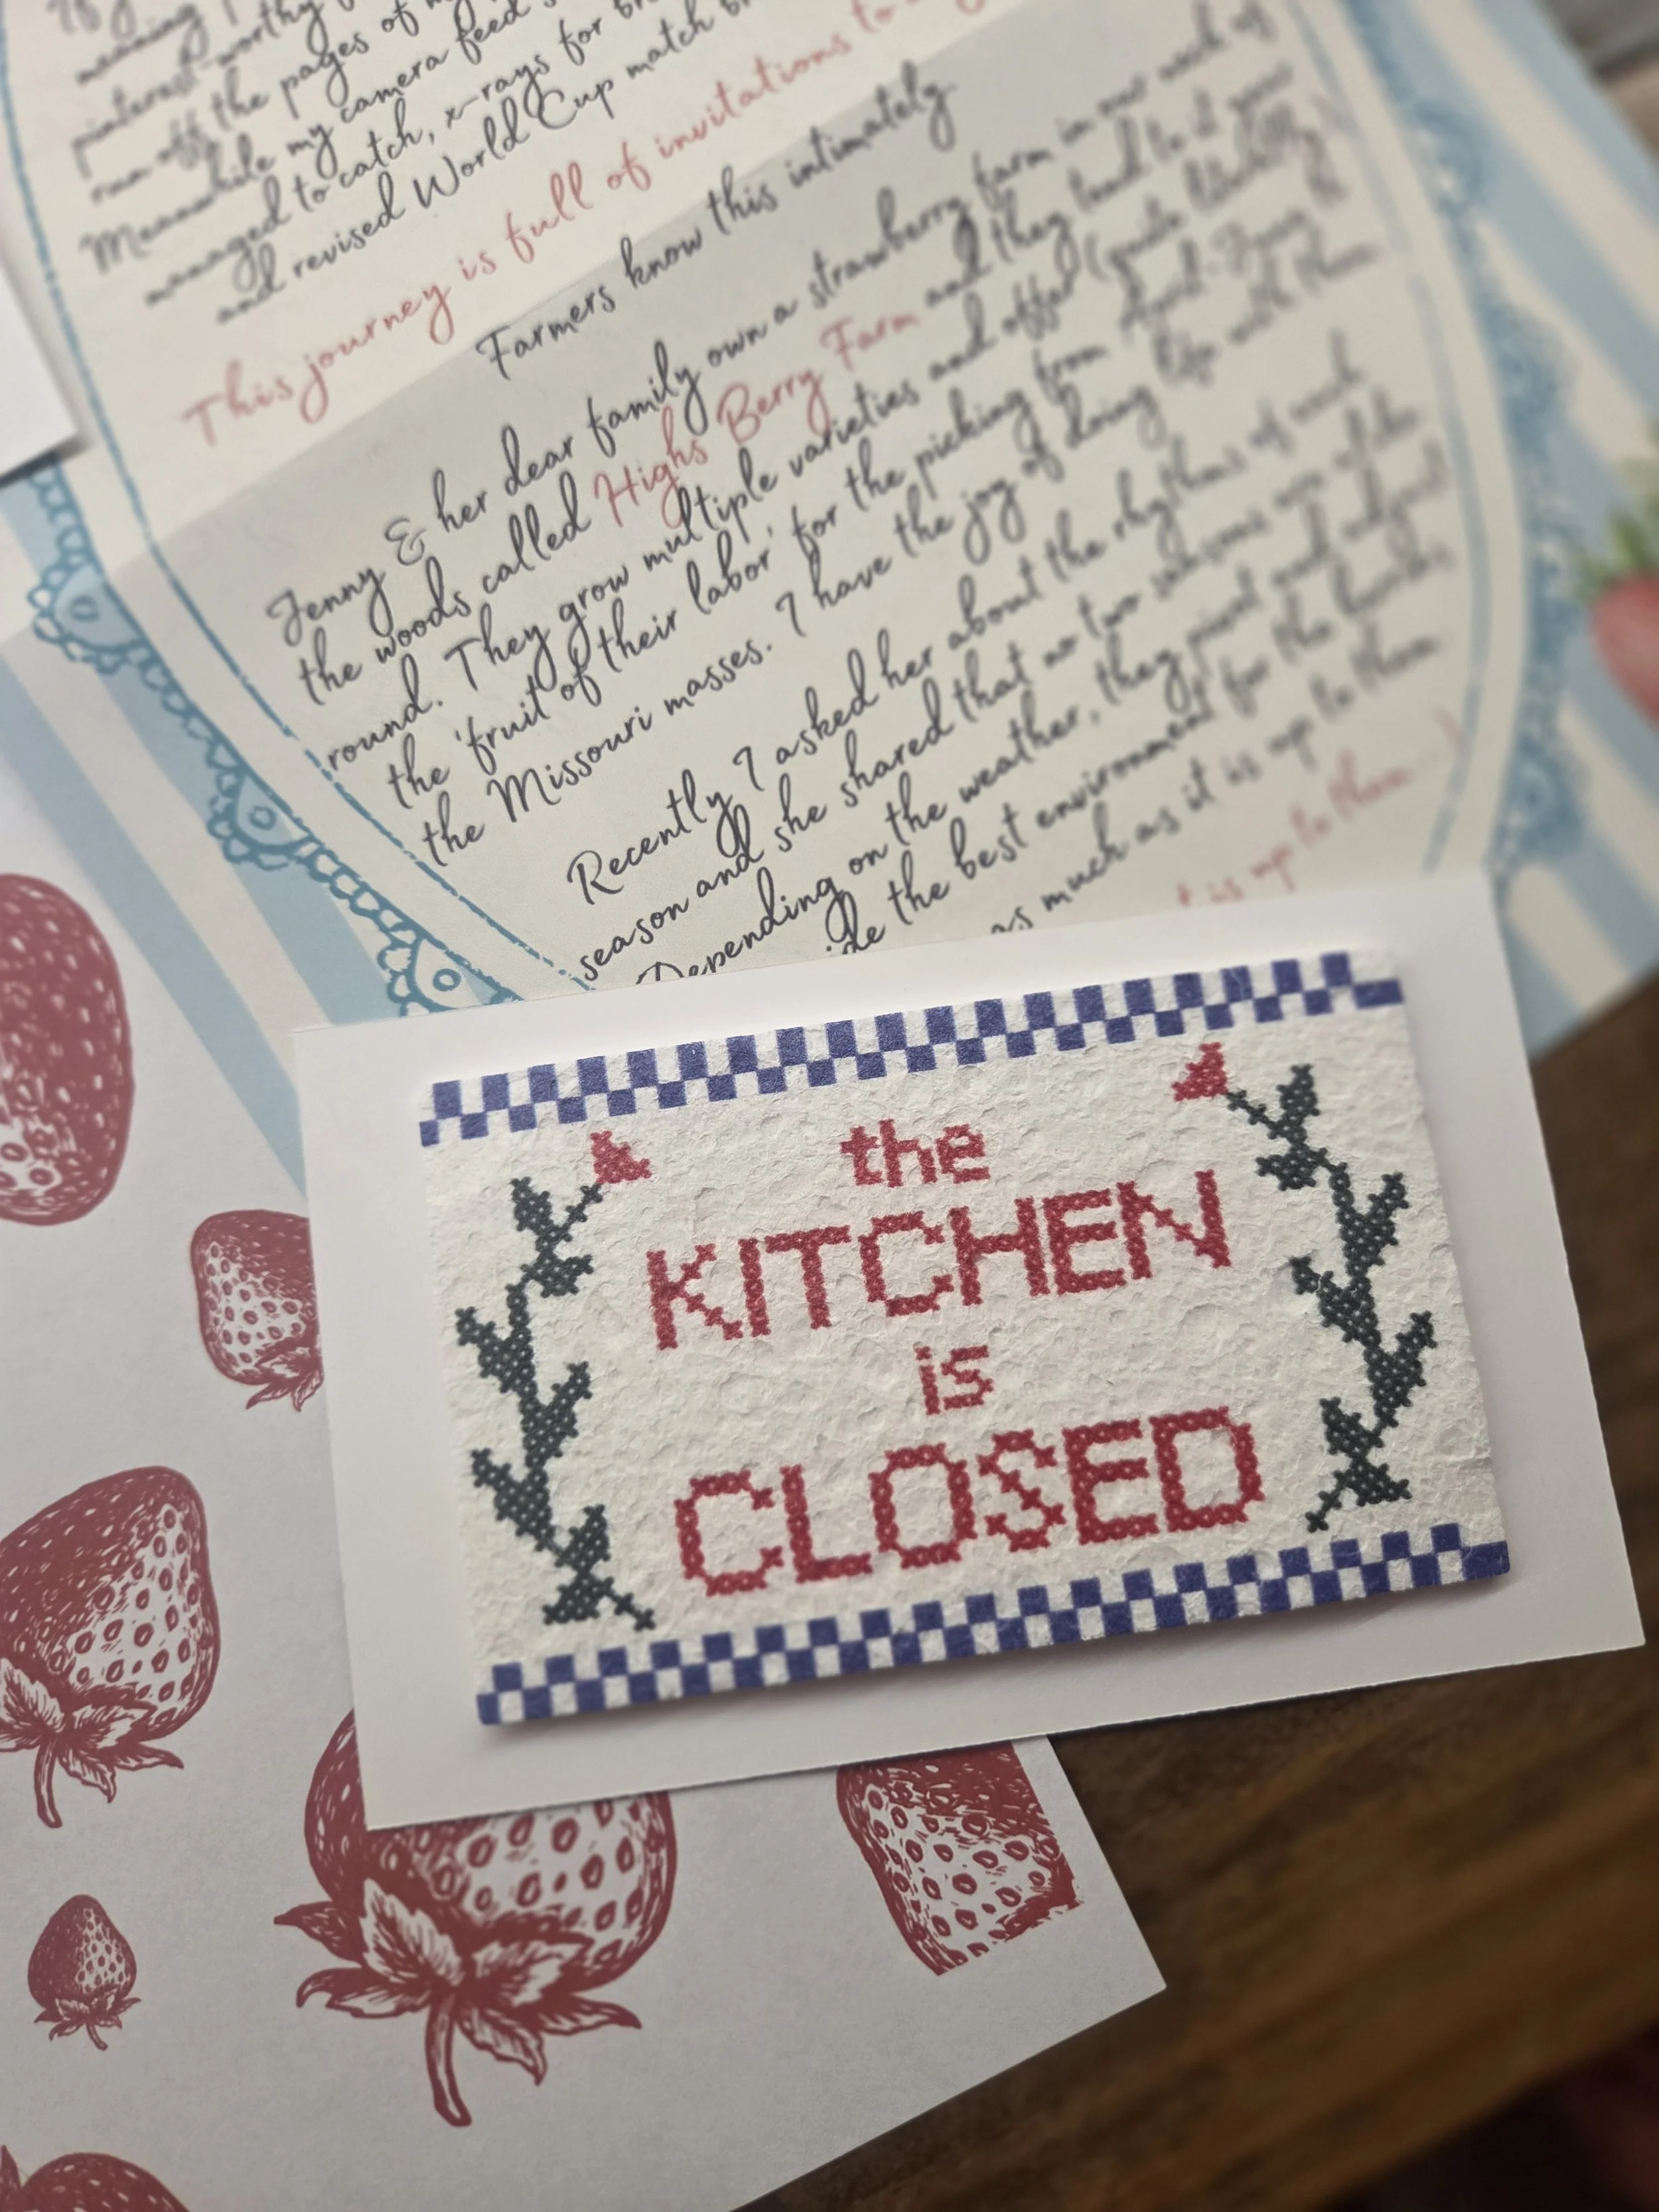 meaning I
pinterest-worthy
run off the pages of my
Meanwhile my camera feed
managed to catch, x-rays for
and revised World Cup match
This journey is full of invitations to
Farmers know this intimately.
Jenny & her dear family own a strawberry farm in our neck of
the woods called Highs Berry Farm and they tend to it year
round. They grow multiple varieties and offer (quite literally)
the 'fruit of their labor' for the picking from
the Missouri masses. I have the joy of doing life with them.
Recently I asked her about the rhythms of each
season and she shared that no two seasons are alike.
Depending on the weather, they pivot and adjust
the best environment for the
as much as it is up to them.
it is up to them
the
KITCHEN
is
CLOSED